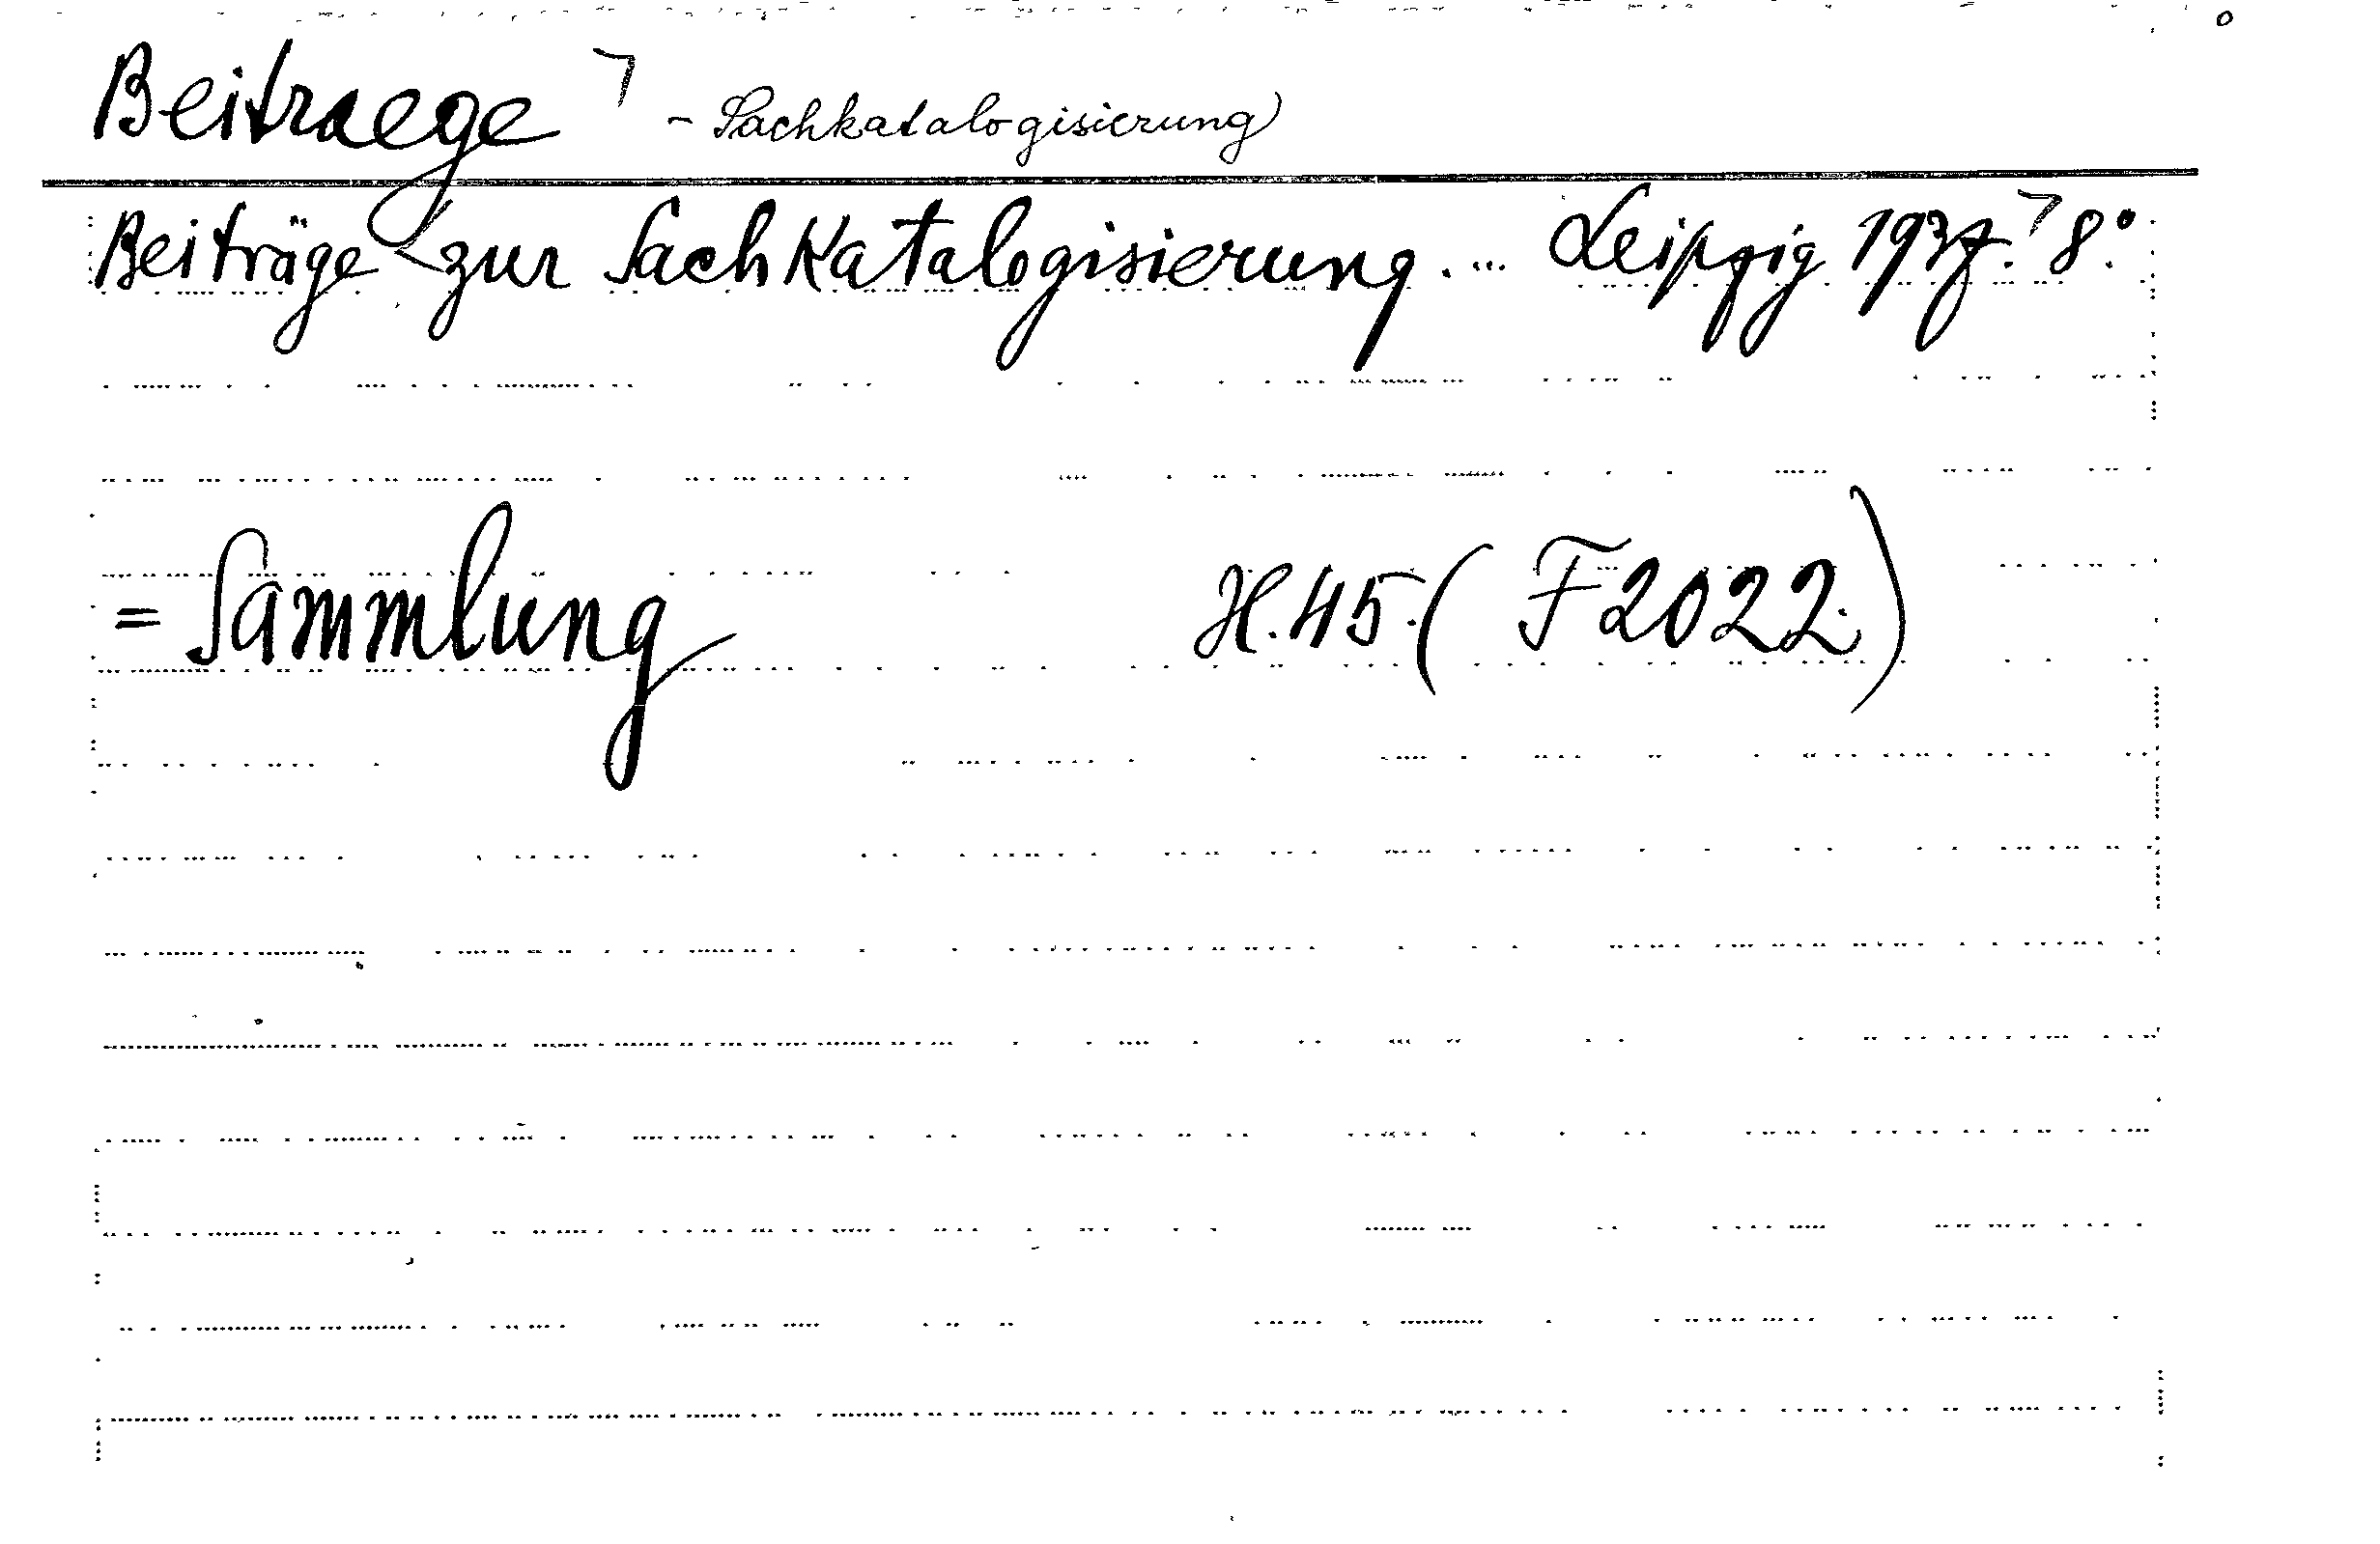 Beitraege ⌝ - Sachkatalogisierung
Beiträge zur Sachkatalogisierung. ... Leipzig 1937.⌝ 8.°
= Sammlung H.45.(F2022.)